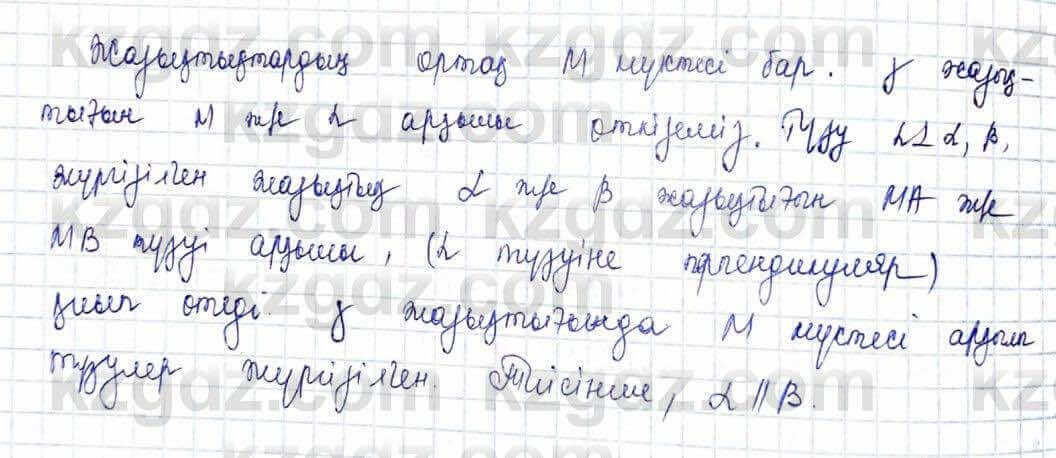 Жазықтықтардың ортақ М нүктесі бар. γ жазық-
тығын М және L арқылы өткіземіз. Түзу L⊥α, β,
жүргізілген жазықтық α және β жазықтығын МА және
МВ түзуі арқылы, (L түзуіне перпендикуляр)
қиып өтеді. γ жазықтығында М нүктесі арқылы
түзулер жүргізілген. Тиісінше, α || β.
kzgdz.com